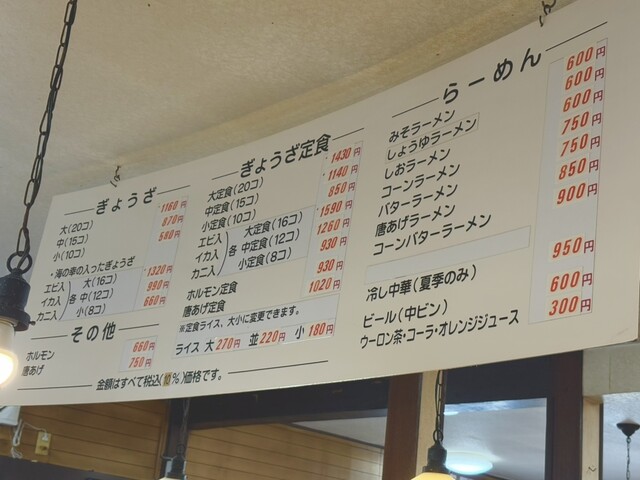 ぎょうざ
大(20コ) 1160円
中(15コ) 870円
小(10コ) 580円
・海の幸の入ったぎょうざ
エビ入 イカ入 カニ入 各
大(16コ) 1320円
中(12コ) 990円
小(8コ) 660円
その他
ホルモン 660円
唐あげ 750円
ぎょうざ定食
大定食(20コ) 1430円
中定食(15コ) 1140円
小定食(10コ) 850円
エビ入 イカ入 カニ入 各
大定食(16コ) 1590円
中定食(12コ) 1260円
小定食(8コ) 930円
ホルモン定食 930円
唐あげ定食 1020円
※定食ライス、大小に変更できます。
ライス 大270円 並220円 小180円
金額はすべて税込(10%)価格です。
らーめん
みそラーメン 600円
しょうゆラーメン 600円
しおラーメン 600円
コーンラーメン 750円
バターラーメン 750円
唐あげラーメン 850円
コーンバターラーメン 900円
冷し中華(夏季のみ) 950円
ビール(中ビン) 600円
ウーロン茶・コーラ・オレンジジュース 300円